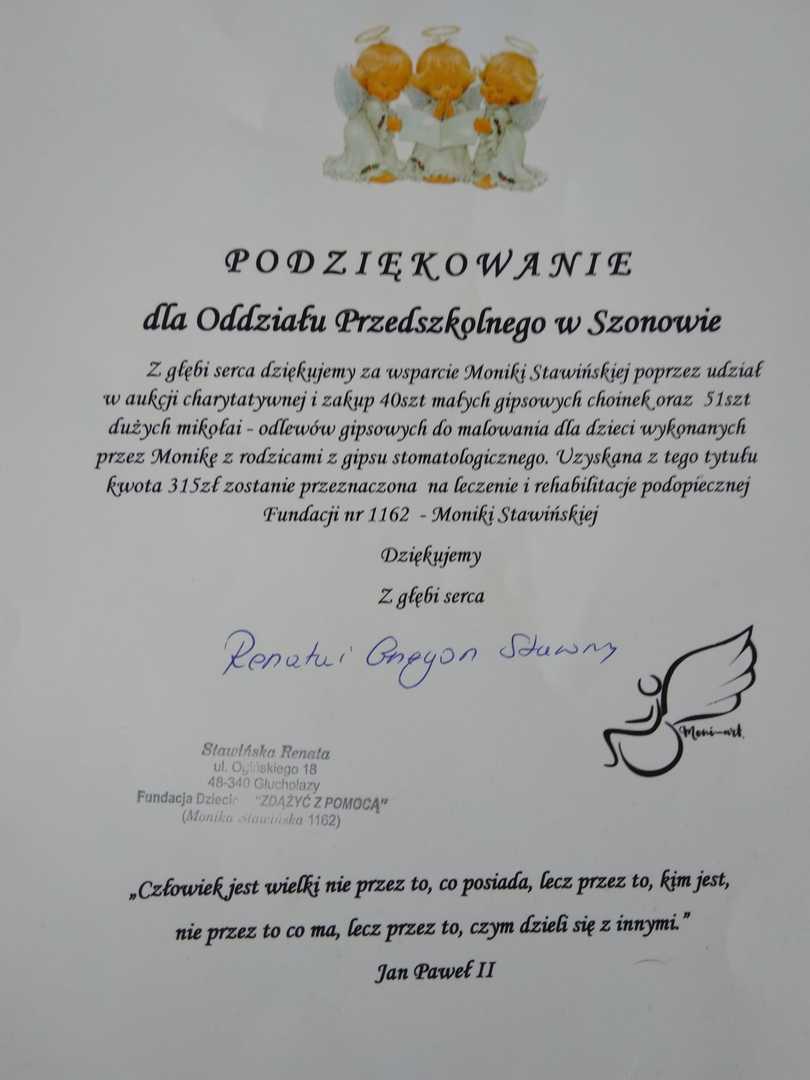 PODZIĘKOWANIE
dla Oddziału Przedszkolnego w Szonowie
Z głębi serca dziękujemy za wsparcie Moniki Stawińskiej poprzez udział
w aukcji charytatywnej i zakup 40szt małych gipsowych choinek oraz 51szt
dużych mikołai - odlewów gipsowych do malowania dla dzieci wykonanych
przez Monikę z rodzicami z gipsu stomatologicznego. Uzyskana z tego tytułu
kwota 315zł zostanie przeznaczona na leczenie i rehabilitacje podopiecznej
Fundacji nr 1162 - Moniki Stawińskiej
Dziękujemy
Z głębi serca
Renata i
Moni-art.
Stawińska Renata
ul. Ogińskiego 18
48-340 Głuchołazy
Fundacja Dziecio "ZDĄŻYĆ Z POMOCĄ"
(Monika Stawińska 1162)
„Człowiek jest wielki nie przez to, co posiada, lecz przez to, kim jest,
nie przez to co ma, lecz przez to, czym dzieli się z innymi.”
Jan Paweł II